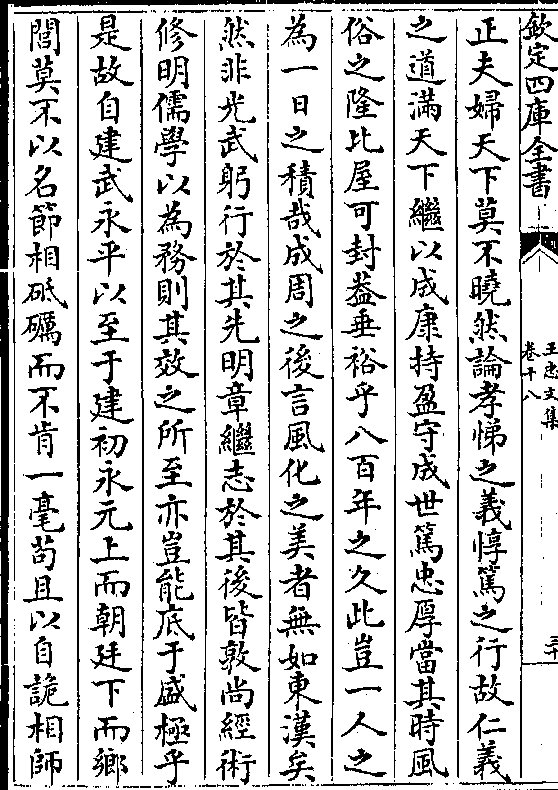 欽定四庫全書
王忠文集
卷十八
三十
正夫婦天下莫不曉然論孝悌之義惇篤之行故仁義
之道滿天下繼以成康持盈守成世篤忠厚當其時風
俗之隆比屋可封葢垂裕乎八百年之久此豈一人之
為一日之積哉成周之後言風化之美者無如東漢矣
然非光武躬行於其先明章繼志於其後皆敦尚經術
修明儒學以為務則其效之所至亦豈能底于盛極乎
是故自建武永平以至于建初永元上而朝廷下而鄉
閭莫不以名節相砥礪而不肯一毫苟且以自詭相師